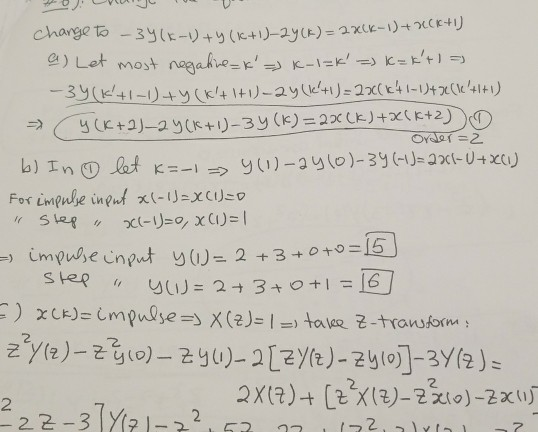 change to -3y(k-1)+y(k+1)-2y(k)=2x(k-1)+x(k+1)
a) Let most negative=k' => k-1=k' => k=k'+1 =>
-3y(k'+1-1)+y(k'+1+1)-2y(k'+1)=2x(k'+1-1)+x(k'+1+1)
=> y(k+2)-2y(k+1)-3y(k)=2x(k)+x(k+2) ①
order=2
b) In ① let k=-1 => y(1)-2y(0)-3y(-1)=2x(-1)+x(1)
For impulse input x(-1)=x(1)=0
" step " x(-1)=0, x(1)=1
=> impulse input y(1)= 2 +3+0+0=5
step " y(1)= 2+3+0+1 = 6
c) x(k)=impulse => X(z)=1 => take z-transform:
z²Y(z)-z²y(0)-zy(1)-2[zY(z)-zy(0)]-3Y(z)=
2X(z)+[z²X(z)-z²x(0)-zx(1)]